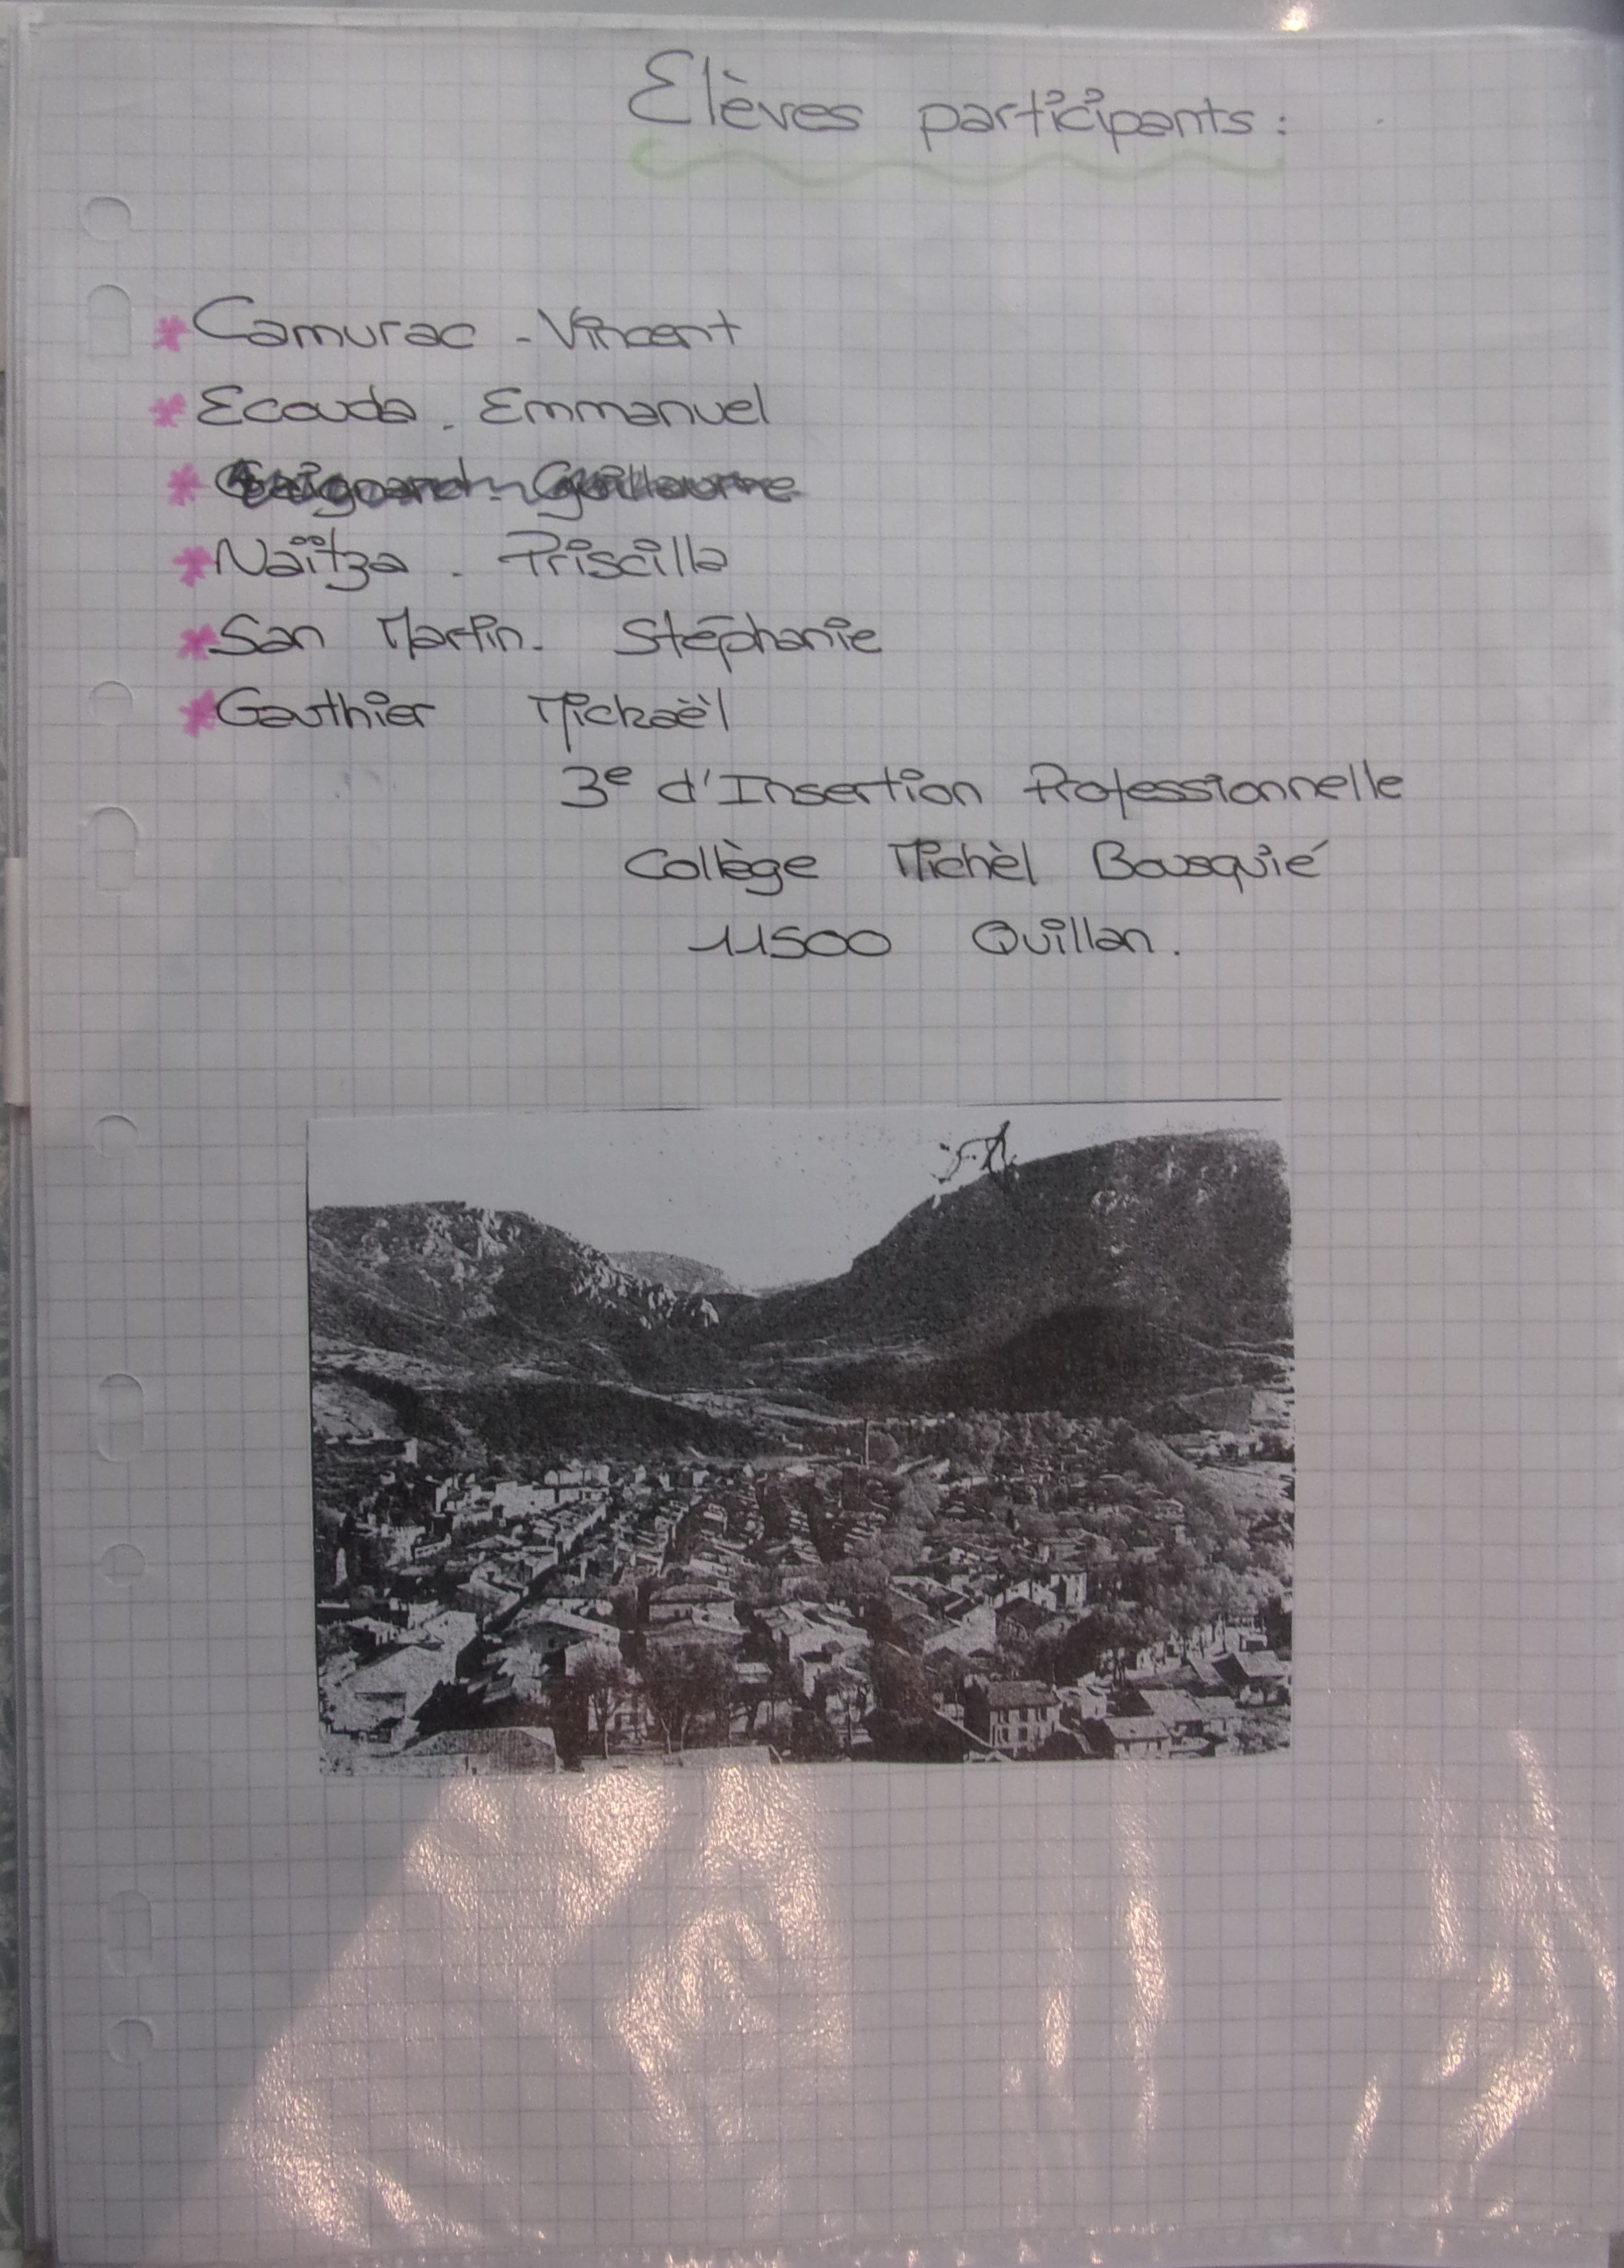 Elèves participants :
Camurac - Vincent
Ecouda . Emmanuel
Guillaume
Naïtza . Priscilla
San Martin. Stéphanie
Gauthier Mickaël
3e d'Insertion Professionnelle
Collège Michèl Bousquié
11500 Quillan.